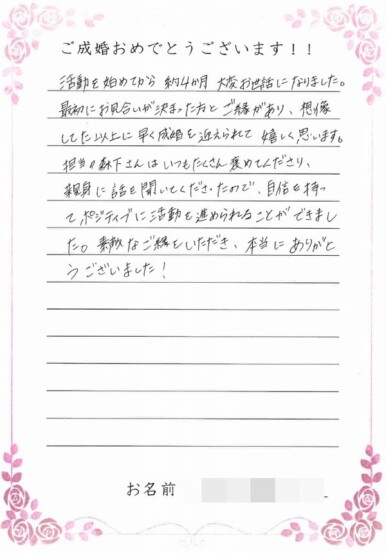 ご成婚おめでとうございます!!
活動を始めてから 約4か月 大変お世話になりました。
最初にお見合いが決まった方と ご縁があり、想像
してた以上に早く成婚を迎えられて 嬉しく思います。
担当の森下さんは いつもたくさん褒めてくださり、
親身に話を聞いてくださったので、自信を持っ
てポジティブに活動を進められることができまし
た。素敵なご縁をいただき、本当にありがと
うございました!
お名前